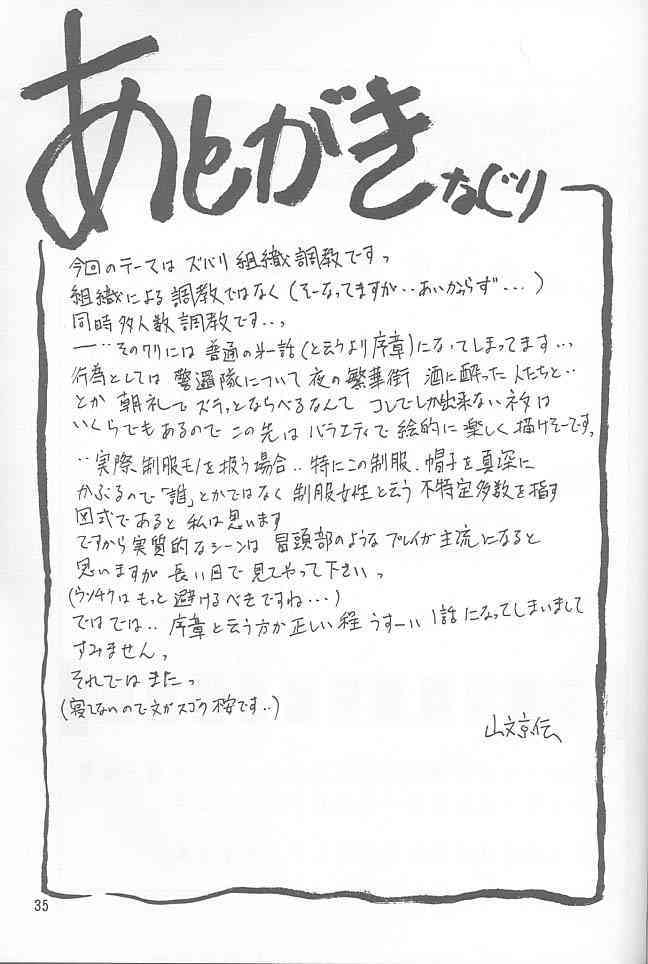 あとがき なぐり
今回のテーマは ズバリ 組織調教です。
組織による 調教ではなく (そーなってますが‥あいかわらず‥‥)
同時多人数調教です‥。
ー‥そのワリには 普通の第一話(と云うより序章)になってしまってます‥‥
行為としては 警邏隊について 夜の繁華街 酒に酔った 人たちと‥
とか 朝礼で ズラッとならべるなんて コレでしか出来ないネタは
いくらでもあるので この先は バラエティで絵的に 楽しく描けそーです。
‥実際 制服モノを扱う場合‥特にこの制服、帽子を真深に
かぶるので「誰」とかではなく 制服女性と云う 不特定多数を指す
図式であると 私は思います
ですから実質的なシーンは 冒頭部のような プレイが主流になると
思いますが 長い目で見てやって下さい。
(ウンチクは もっと避けるべきですね‥‥)
ではでは‥ 序章と云う方が正しい程 うすーい 1話になってしまいまして
すみません。
それでは また。
(寝てないので文がスゴク 不安です‥)
山文京伝
35